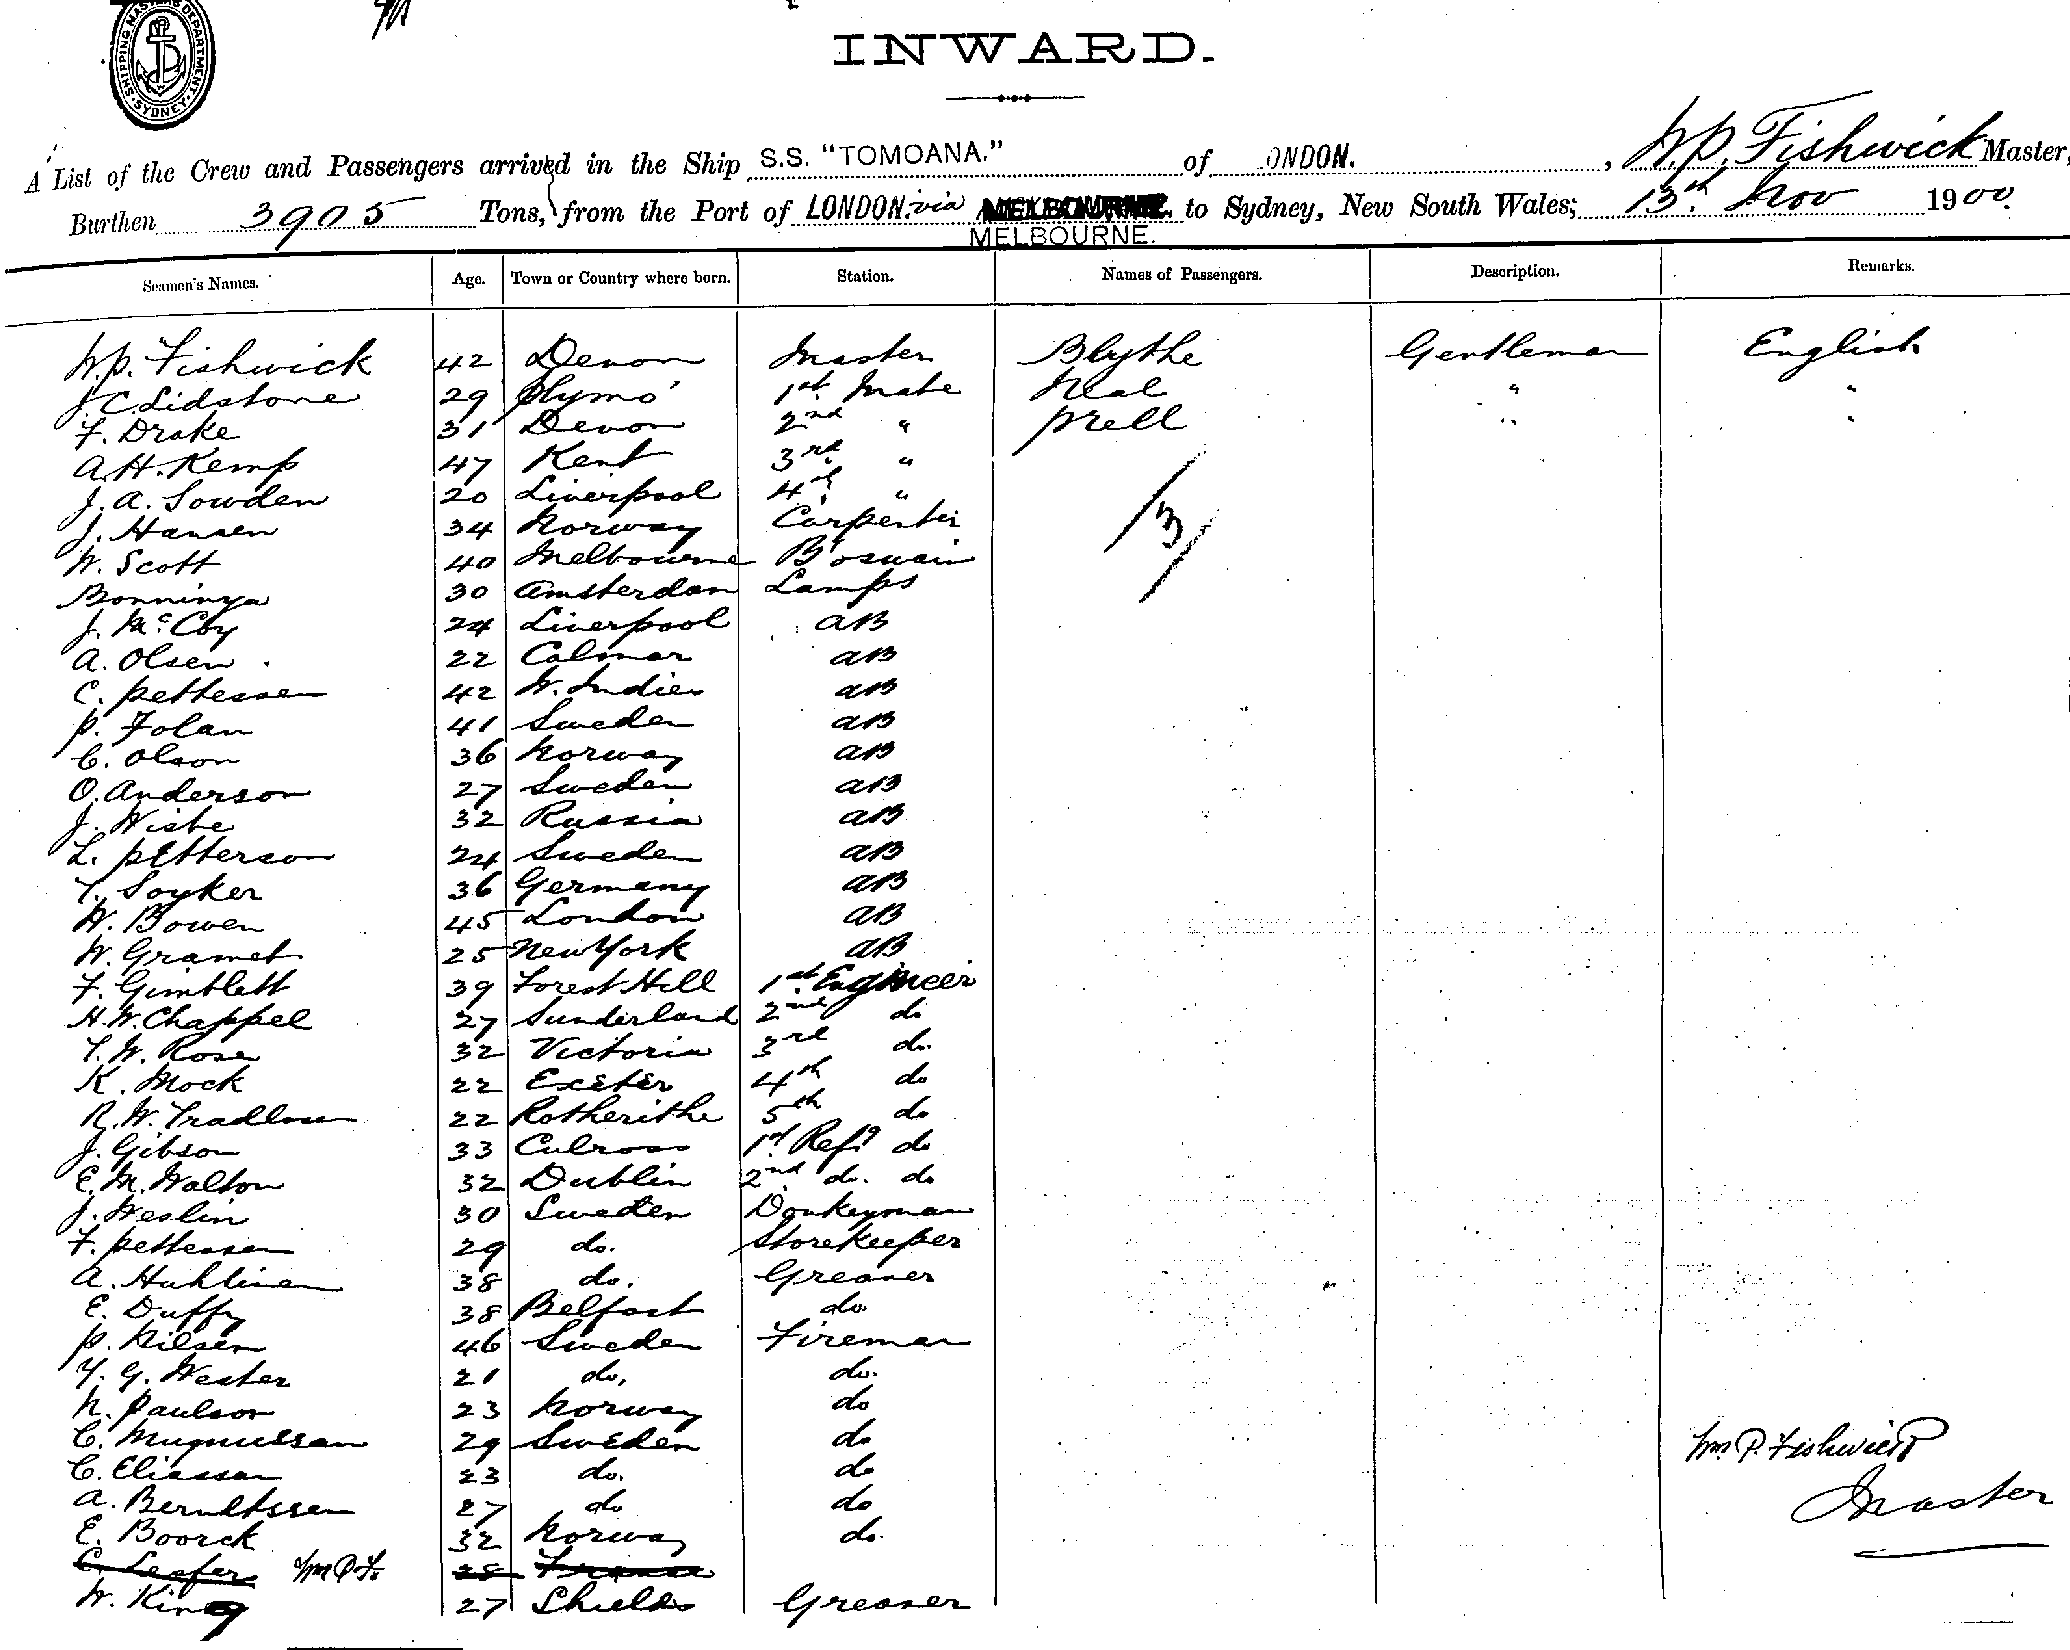 SHIPPING MASTERS DEPARTMENT SYDNEY
INWARD.
A List of the Crew and Passengers arrived in the Ship S.S. "TOMOANA." of ONDON. , W.P. Fishwick Master,
Burthen 3905 Tons, from the Port of LONDON. via MELBOURNE. to Sydney, New South Wales; 13th Nov 1900.
MELBOURNE.
Seamen's Names. Age. Town or Country where born. Station. Names of Passengers. Description. Remarks.
W.P. Fishwick 42 Devon Master Blythe Gentleman English
J.C Lidstone 29 Plymo' 1st Mate Neal " "
F. Drake 31 Devon 2nd " Prell " "
A.H. Kemp 47 Kent 3rd "
J.A. Sowden 20 Liverpool 4th "
J. Hansen 34 Norway Carpenter
3
W. Scott 40 Melbourne B'oswain
Bonninga 30 Amsterdam Lamps
J. McCoy 24 Liverpool AB
A. Olsen 22 Calmar AB
C. Pettersen 42 W. Indies AB
P. Folan 41 Sweden AB
C. Olson 36 Norway AB
O. Anderson 27 Sweden AB
J. Wisbe 32 Russia AB
L. Petterson 24 Sweden AB
T. Soyker 36 Germany AB
W. Bowen 45 London AB
W. Gramet 25 New York AB
F. Gimblett 39 Forest Hill 1st Engineer
H.W. Chappel 27 Sunderland 2nd do
T.W. Rose 32 Victoria 3rd do.
K. Mock 22 Exeter 4th do
R.W. 22 Rotherithe 5th do
J. Gibson 33 Culross 1st Refg do
E.M. Walton 32 Dublin 2nd do. do
J. Weslin 30 Sweden Donkeyman
F. Pettersen 29 do. Storekeeper
A. 38 do. Greaser
E. Duffy 38 Belfast do
P. Nilsen 46 Sweden Fireman
Y. G. Wester 21 do, do.
N. Paulson 23 Norway do
C. Magnussen 29 Sweden do
Wm P. Fishwick
C. Eliassen 23 do. do
A. Berndtssen 27 do do
Master
E. Boorck 32 Norway do.
C. Leafer Wm P.F. 28 France
W. King 27 Shields Greaser